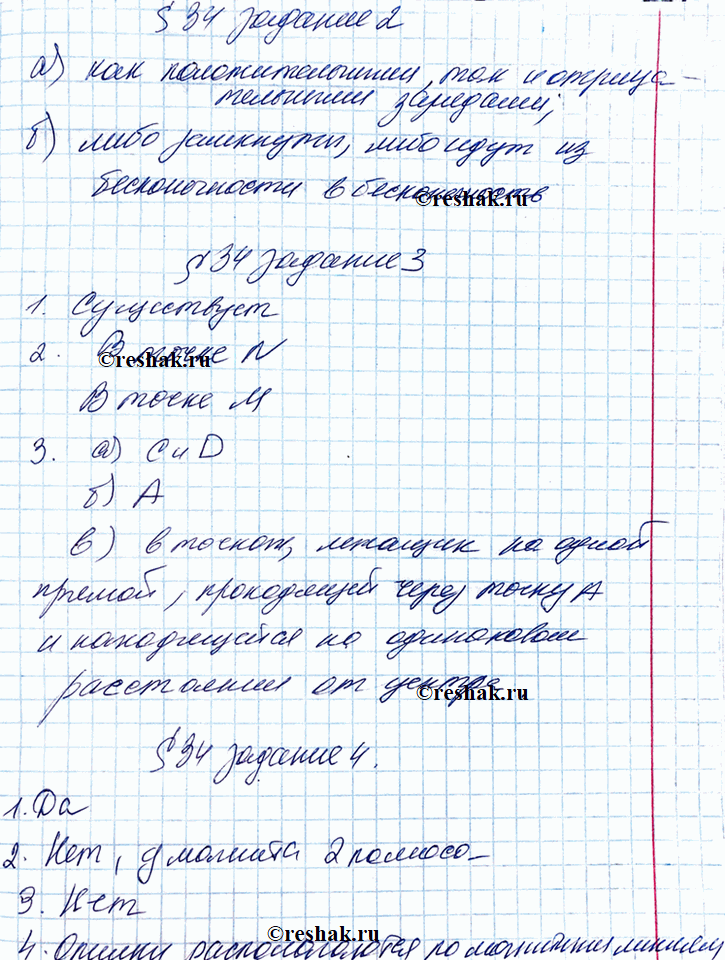 § 34 задание 2
а) как положительными, так и отрица-
тельными зарядами;
б) либо замкнуты, либо идут из
бесконечности в бесконечность
©reshak.ru
§ 34 задание 3
1. Существует
2. В точке N
©reshak.ru
В точке М
3. а) С и D
б) А
в) в точках, лежащих на одной
прямой, проходящей через точку А
и находящейся на одинаковом
расстоянии от центра
©reshak.ru
§ 34 задание 4.
1. Да
2. Нет, у магнита 2 полюса
3. Нет
©reshak.ru
4. Опилки располагаются по магнитным линиям